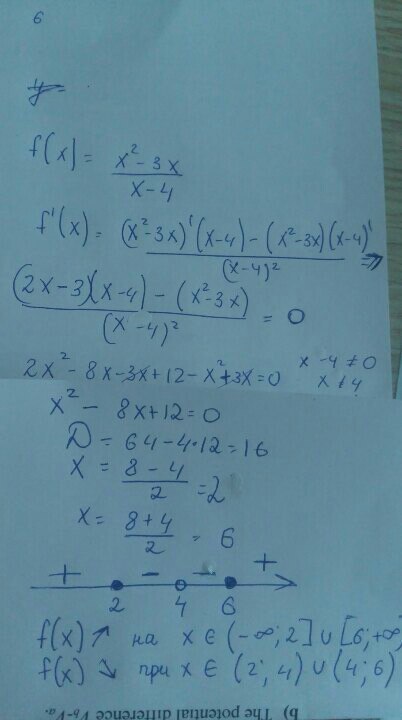 6
y=
f(x) = x² - 3x / x - 4
f'(x) = (x²-3x)'(x-4) - (x²-3x)(x-4)' / (x-4)² =>
(2x-3)(x-4) - (x²-3x) / (x-4)² = 0
2x² - 8x - 3x + 12 - x² + 3x = 0 x - 4 ≠ 0
x ≠ 4
x² - 8x + 12 = 0
D = 64 - 4·12 = 16
x = 8 - 4 / 2 = 2
x = 8 + 4 / 2 = 6
+ - - +
2 4 6
f(x) ↗ на x ∈ (-∞; 2] ∪ [6; +∞
f(x) ↘ при x ∈ (2; 4) ∪ (4; 6)
b) The potential difference V_b-V_a.